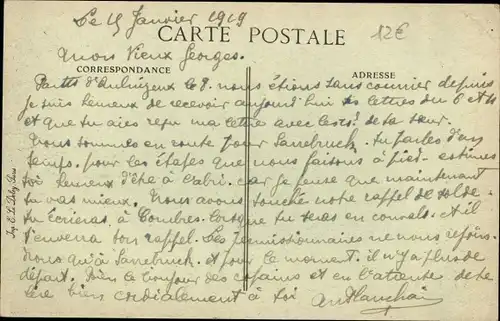 Le 15 Janvier 1919
CARTE POSTALE
12€
Mon Vieux Georges.
CORRESPONDANCE
ADRESSE
Partis d' le 8. nous étions sans courrier depuis
je suis heureux de recevoir aujourd'hui les lettres du 6 et
et que tu aies reçu ma lettre avec de ta sœur.
Nous sommes en route pour Sarrebruck. tu parles d'un
temps. pour les étapes que nous faisons à pied. estimes
toi heureux d'être à l'abri. car je pense que maintenant
tu vas mieux. Nous avons touché notre rappel de solde.
tu écriras à Combres lorsque tu seras en convals. et il
t'enverra ton rappel. Les permissionnaires ne nous rejoin-
dront qu'à Sarrebruck. et pour le moment. il n'y a plus de
départ. Bien le bonjour des copains et en l'attente de te
lire bien cordialement à toi
Imp. E. L. Deley,